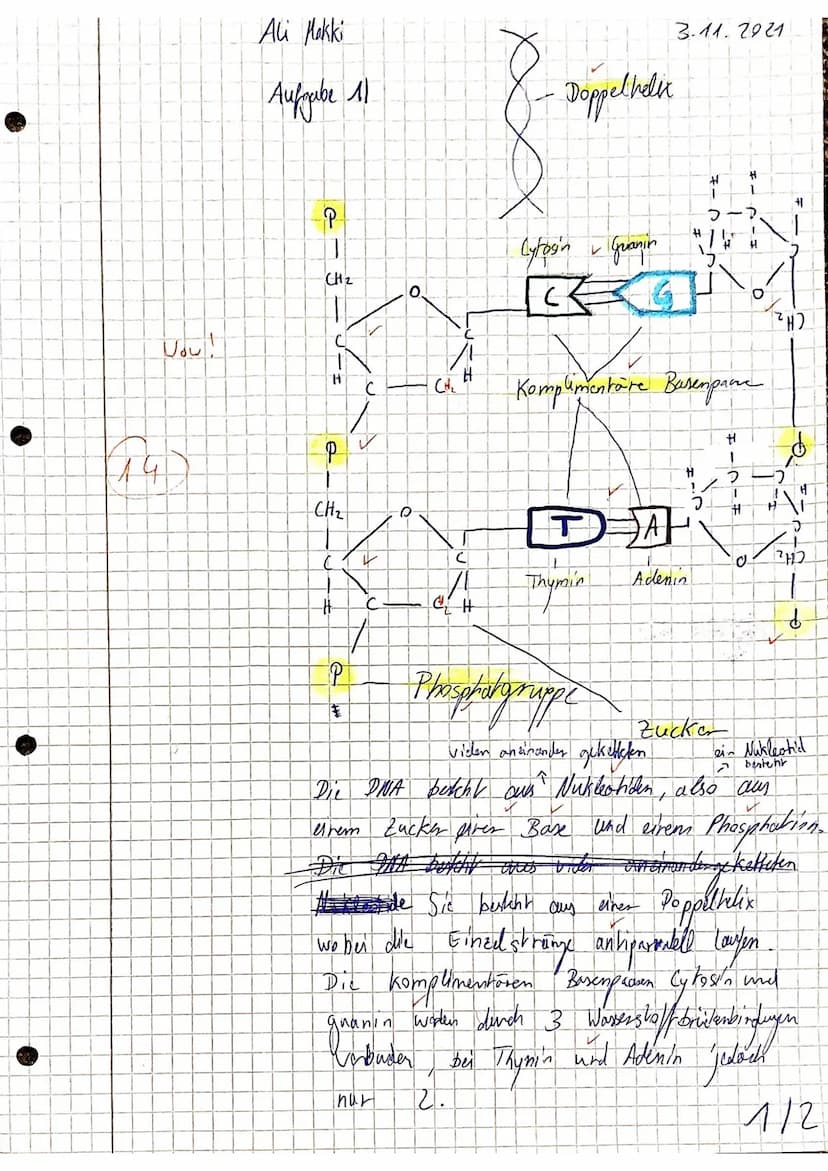 Ali Makki
3.11.2021
Aufgabe 1)
Doppelhelix
P
CH2
O
C
C
H
H
C
CH2
Cytosin
Guanin
C
G
H H H
O
CH2
Vou!
14
Komplimentäre Basenpaare
P
CH2
O
C
C
H
C
CH2
H
T
A
Thymin
Adenin
H
O
CH2
P
Phosphatgruppe
Zucker
vielen aneinander geketteten
ein Nukleotid
besteht
Die DNA besteht aus Nukleotiden, also aus
einem Zucker einer Base und einem Phosphation.
Die DNA besteht aus vielen aneinandergeketteten
Sie besteht aus einer Doppelhelix
wobei die Einzelstränge antiparallel laufen.
Die komplimentären Basenpaaren Cytosin und
guanin werden durch 3 Wasserstoffbrückenbindungen
Verbunden, bei Thymin und Adenin jedoch
nur 2.
1/2